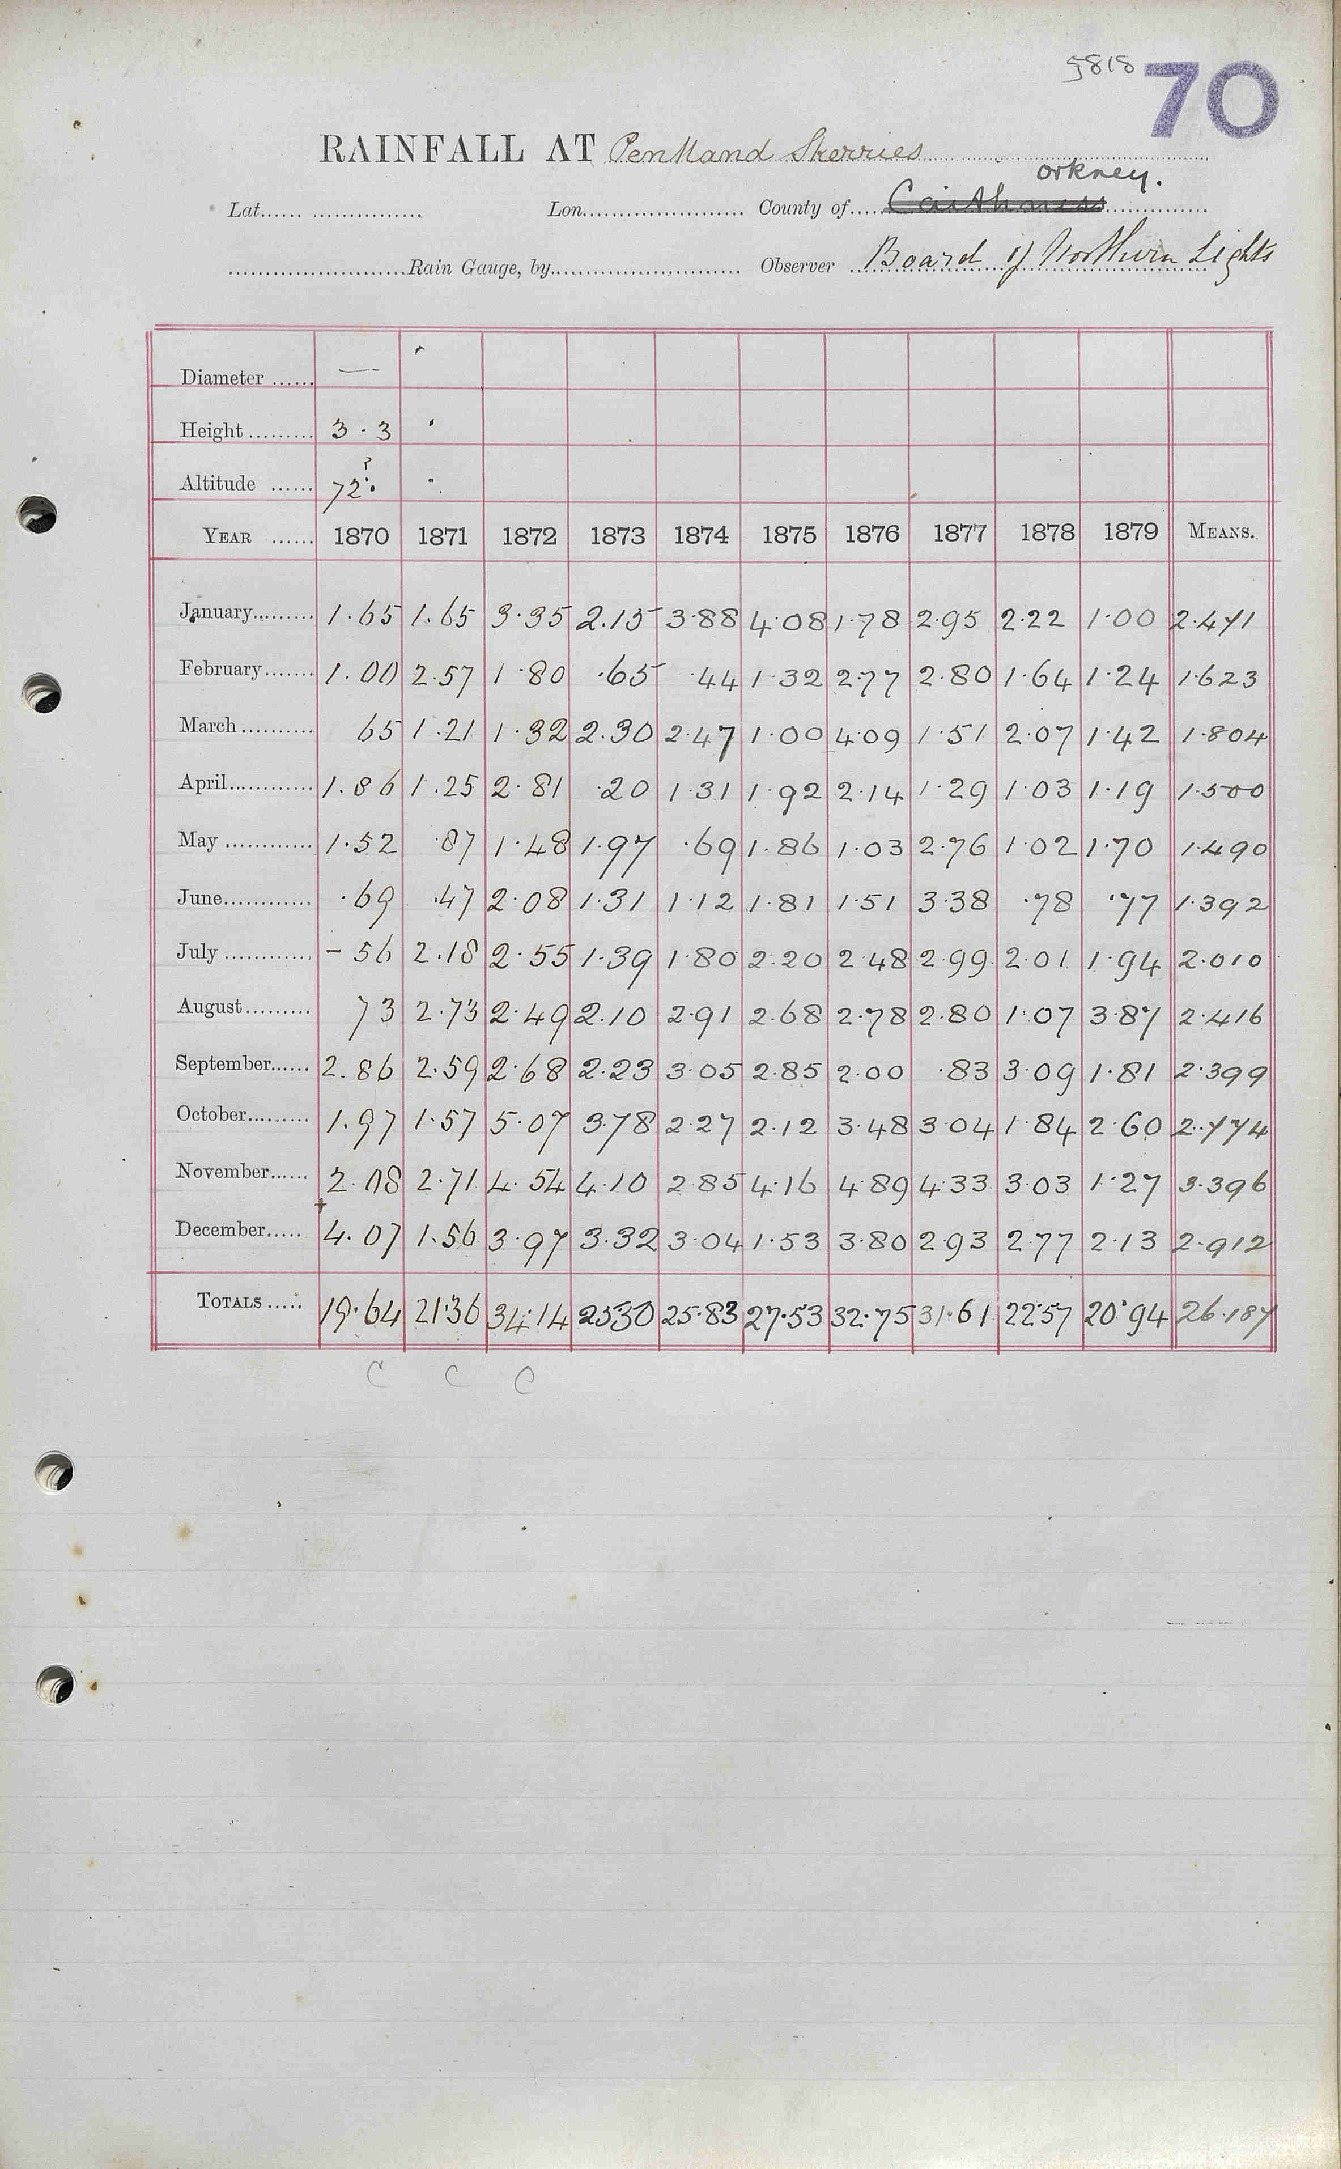 5818 70
RAINFALL AT Pentland Skerries
orkney.
Lat. Lon. County of Caithness
Rain Gauge, by Observer Board of Northern Lights
Diameter —
Height 3.3
Altitude 72 ?
YEAR 1870 1871 1872 1873 1874 1875 1876 1877 1878 1879 MEANS.
January 1.65 1.65 3.35 2.15 3.88 4.08 1.78 2.95 2.22 1.00 2.471
February 1.00 2.57 1.80 .65 .44 1.32 2.77 2.80 1.64 1.24 1.623
March 65 1.21 1.32 2.30 2.47 1.00 4.09 1.51 2.07 1.42 1.804
April 1.86 1.25 2.81 .20 1.31 1.92 2.14 1.29 1.03 1.19 1.500
May 1.52 .87 1.48 1.97 .69 1.86 1.03 2.76 1.02 1.70 1.490
June .69 .47 2.08 1.31 1.12 1.81 1.51 3.38 .78 .77 1.392
July – 56 2.18 2.55 1.39 1.80 2.20 2.48 2.99 2.01 1.94 2.010
August 73 2.73 2.49 2.10 2.91 2.68 2.78 2.80 1.07 3.87 2.416
September 2.86 2.59 2.68 2.23 3.05 2.85 2.00 .83 3.09 1.81 2.399
October 1.97 1.57 5.07 3.78 2.27 2.12 3.48 3.04 1.84 2.60 2.774
November 2.08 2.71 4.54 4.10 2.85 4.16 4.89 4.33 3.03 1.27 3.396
December 4.07 1.56 3.97 3.32 3.04 1.53 3.80 2.93 2.77 2.13 2.912
TOTALS 19.64 21.36 34.14 25.30 25.83 27.53 32.75 31.61 22.57 20.94 26.187
C C C